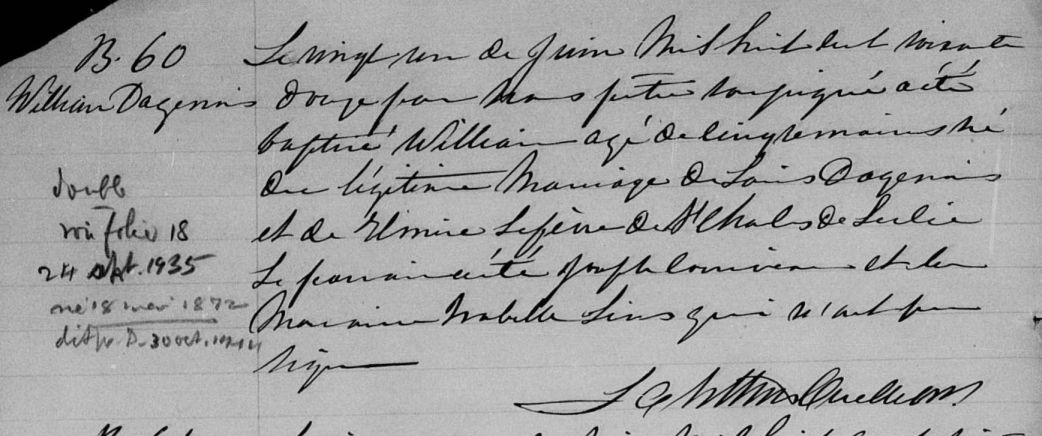 B. 60
William Dagenais
Le vingt un de Juin Mil huit cent soixante
douze par nous prêtre soussigné a été
baptisé William agé de cinq semaines né
du légitime Mariage de Louis Dagenais
et de Elmire Lefèvre de St Charles de
Le parrain a été Joseph et la
Marraine Isabelle qui n'ont pu
signer
double
voir folio 18
24 sept. 1935
né 18 mai 1872
30 oct.